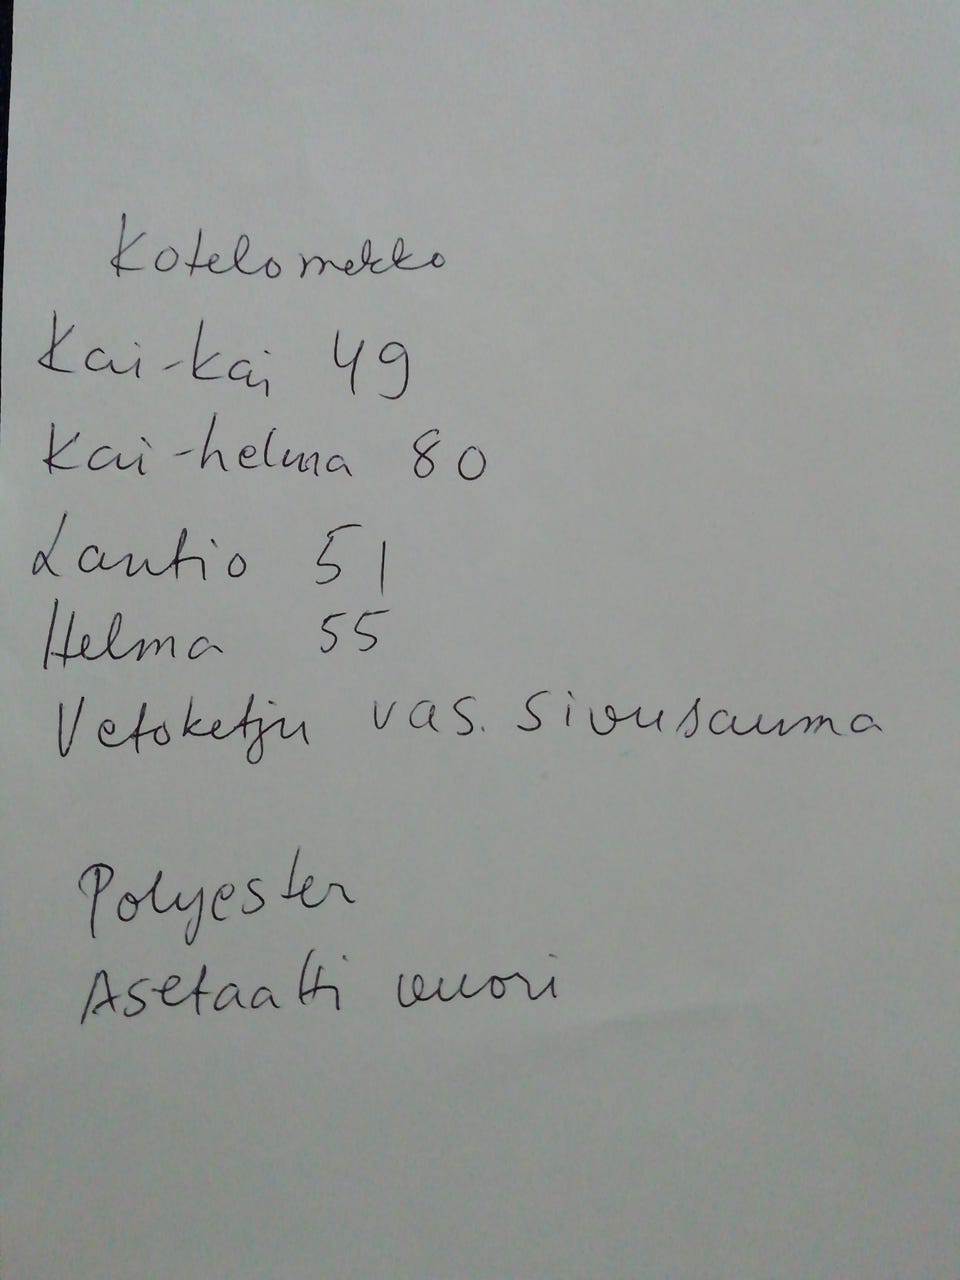 Kotelomekko
Kai-kai 49
Kai-helma 80
Lantio 51
Helma 55
Vetoketju vas. sivusauma
Polyester
Asetaatti vuori